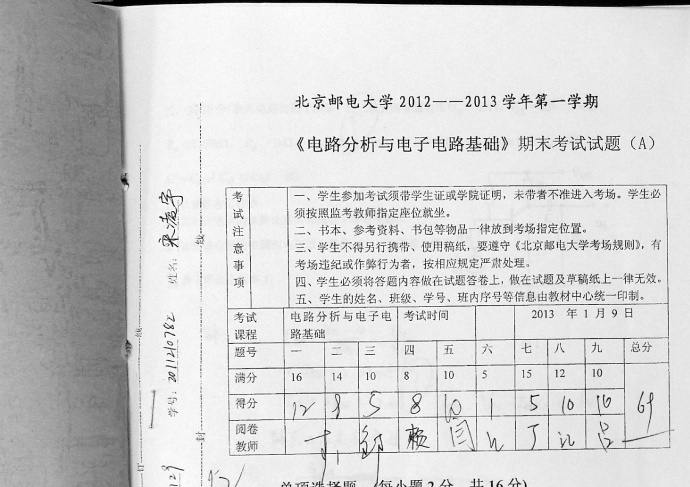 北京邮电大学2012——2013学年第一学期
《电路分析与电子电路基础》期末考试试题（A）
考试注意事项
一、学生参加考试须带学生证或学院证明，未带者不准进入考场。学生必
须按照监考教师指定座位就坐。
二、书本、参考资料、书包等物品一律放到考场指定位置。
三、学生不得另行携带、使用稿纸，要遵守《北京邮电大学考场规则》，有
考场违纪或作弊行为者，按相应规定严肃处理。
四、学生必须将答题内容做在试题答卷上，做在试题及草稿纸上一律无效。
五、学生的姓名、班级、学号、班内序号等信息由教材中心统一印制。
考试课程 电路分析与电子电路基础 考试时间 2013 年 1 月 9 日
题号 一 二 三 四 五 六 七 八 九 总分
满分 16 14 10 8 10 5 15 12 10
得分 12 8 5 8 10 1 5 10 10 69
阅卷教师 赖 闫
单项选择题 (每小题2分，共16分)
姓名：
学号：2011210782
线
封
订